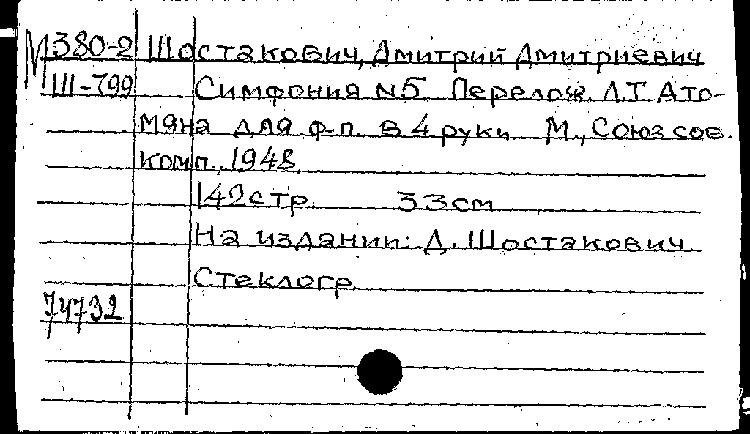 М380-2 Шостакович, Дмитрий Дмитриевич
III-799 Симфония №5. Перелож. Л.Т. Ато-
мяна для ф-п. в 4 руки. М., Союз сов.
комп., 1948.
142 стр. 33 см
На издании: Д. Шостакович
Стеклогр.
74732